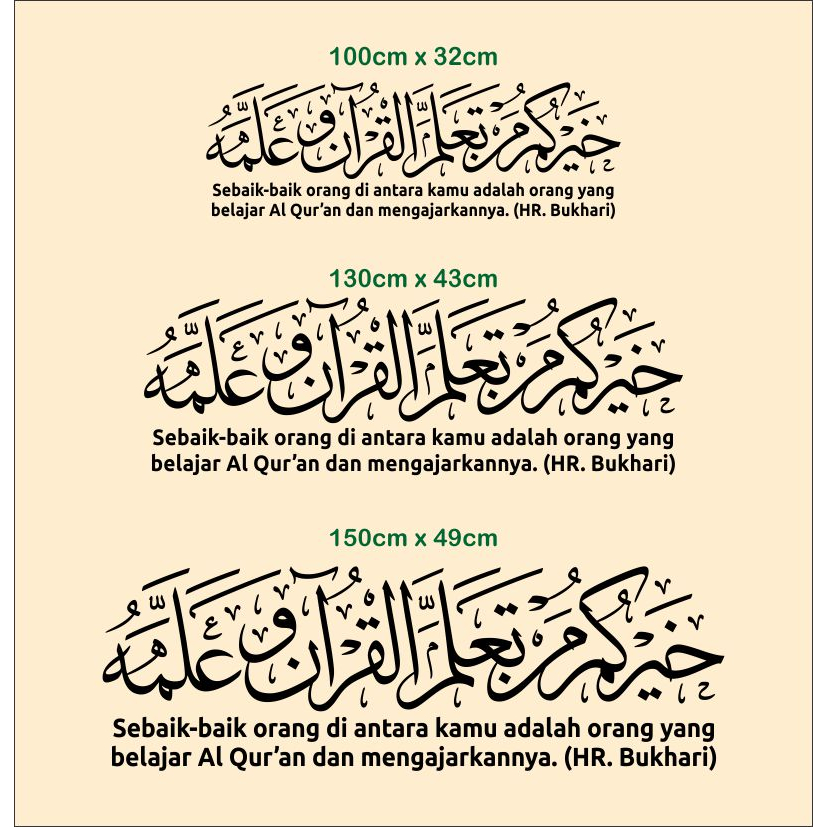 100cm x 32cm
خَيْرُكُمْ مَنْ تَعَلَّمَ الْقُرْآنَ وَعَلَّمَهُ
Sebaik-baik orang di antara kamu adalah orang yang
belajar Al Qur’an dan mengajarkannya. (HR. Bukhari)
130cm x 43cm
خَيْرُكُمْ مَنْ تَعَلَّمَ الْقُرْآنَ وَعَلَّمَهُ
Sebaik-baik orang di antara kamu adalah orang yang
belajar Al Qur’an dan mengajarkannya. (HR. Bukhari)
150cm x 49cm
خَيْرُكُمْ مَنْ تَعَلَّمَ الْقُرْآنَ وَعَلَّمَهُ
Sebaik-baik orang di antara kamu adalah orang yang
belajar Al Qur’an dan mengajarkannya. (HR. Bukhari)